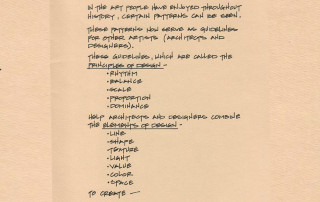 IN THE ART PEOPLE HAVE ENJOYED THROUGHOUT
HISTORY, CERTAIN PATTERNS CAN BE SEEN.
THESE PATTERNS NOW SERVE AS GUIDELINES
FOR OTHER ARTISTS (ARCHITECTS AND
DESIGNERS).
THESE GUIDELINES, WHICH ARE CALLED THE
PRINCIPLES OF DESIGN -
• RHYTHM
• BALANCE
• SCALE
• PROPORTION
• DOMINANCE
HELP ARCHITECTS AND DESIGNERS COMBINE
THE ELEMENTS OF DESIGN -
• LINE
• SHAPE
• TEXTURE
• LIGHT
• VALUE
• COLOR
• SPACE
TO CREATE —